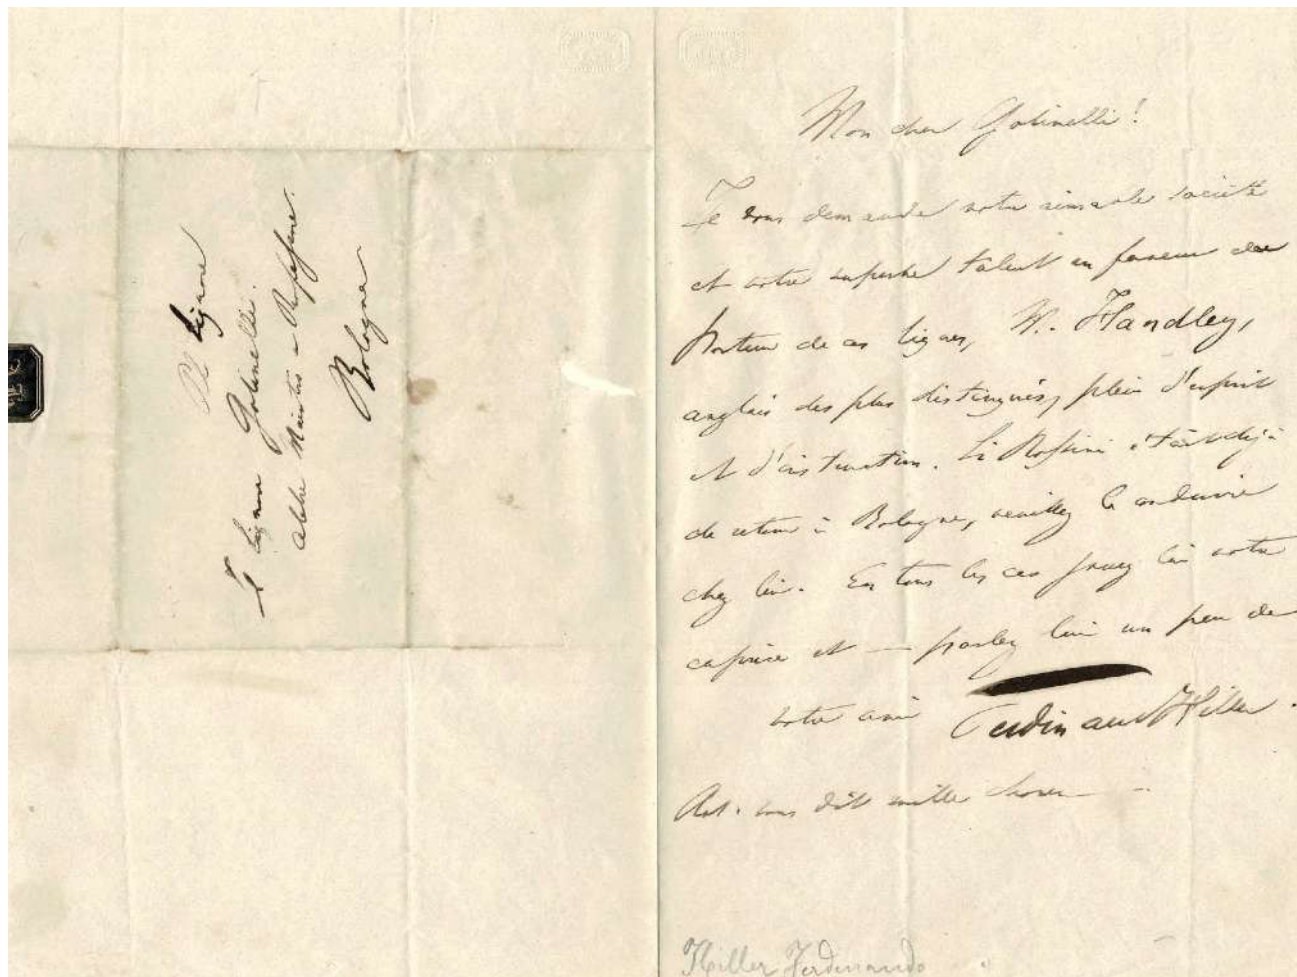 Al Signore
Il Signor Golinelli.
celebre Maestro e Professore.
Bologna
Mon cher Golinelli!
Je vous demande votre aimable société
et votre superbe talent en faveur du
porteur de ces lignes, M. Handley,
anglais des plus distingués, plein d'esprit
et d'instruction. Si Rossini était déjà
de retour à Bologne, veuillez le conduire
chez lui. En tous les cas jouez lui votre
caprice et — parlez lui un peu de
votre ami Ferdinand Hiller.
vous dit mille choses —
Hiller Ferdinando